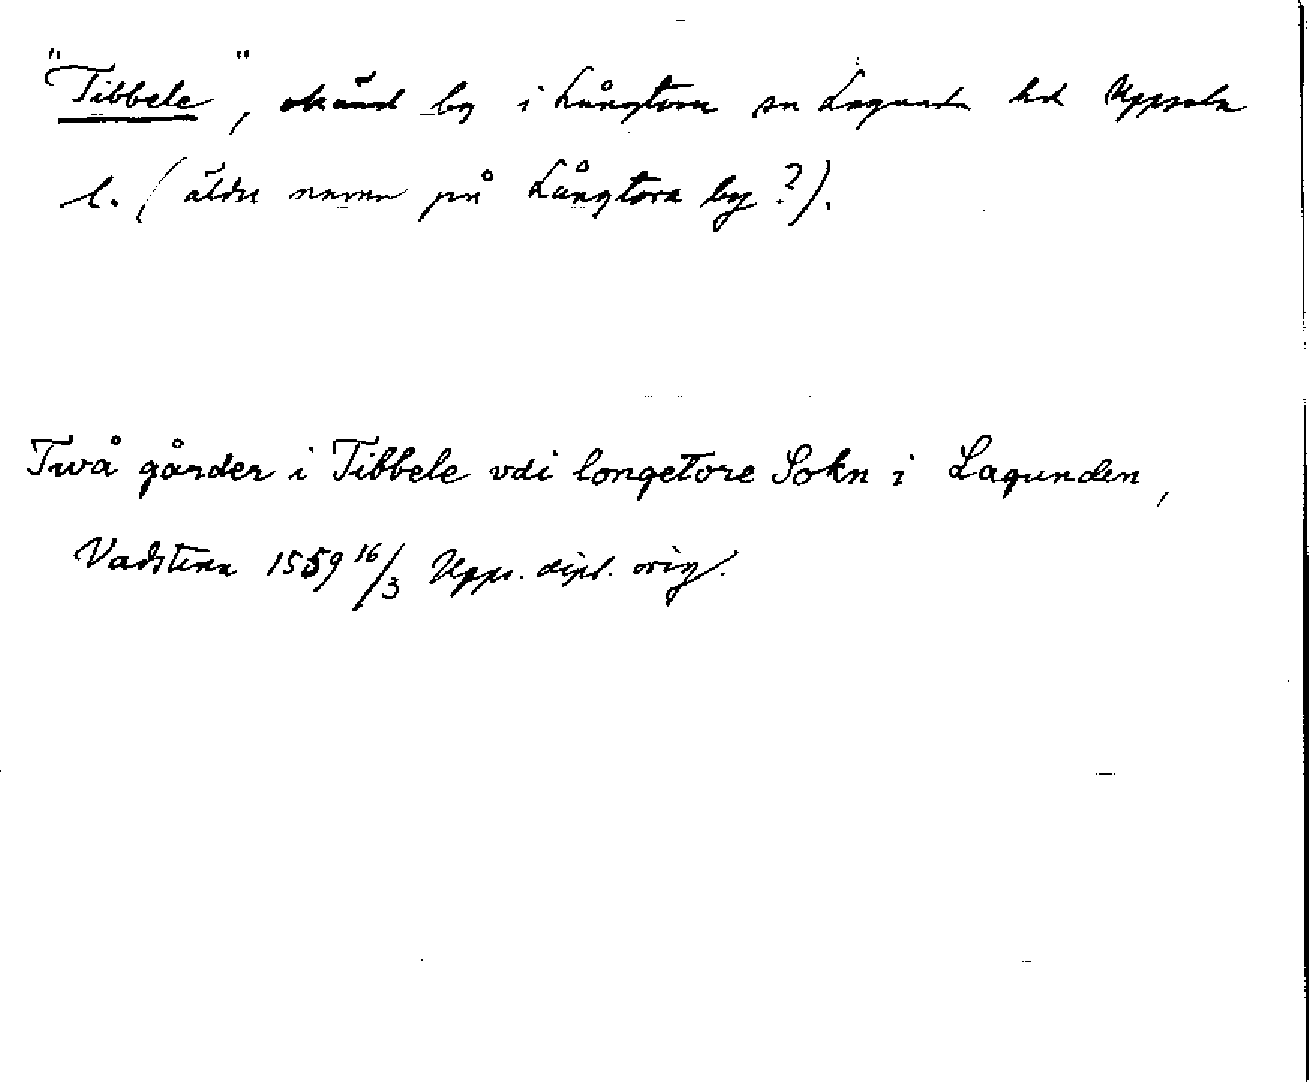 "Tibbele", okänd by i Långtora sn Lagunda hd Uppsala
l. (äldre namn på Långtora by?).
Twå gårder i Tibbele vdi longetore Sokn i Lagunden,
Vadstena 1559 16/3 Upps. dipl. orig.